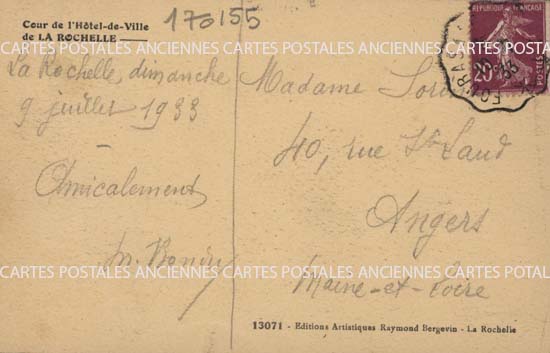 Cour de l'Hôtel-de-Ville
de LA ROCHELLE
170155
La Rochelle, dimanche
9 juillet 1933
Amicalement
Madame
40, rue St Laud
Angers
Maine-et-Loire
REPUBLIQUE FRANÇAISE
20c
POSTES
FOURAS
13071 - Editions Artistiques Raymond Bergevin - La Rochelle
CARTES POSTALES ANCIENNES CARTES POSTALES ANCIENNES CARTES POSTALES ANCIENNES
CARTES POSTALES ANCIENNES CARTES POSTALES ANCIENNES CARTES POSTALES ANCIENNES